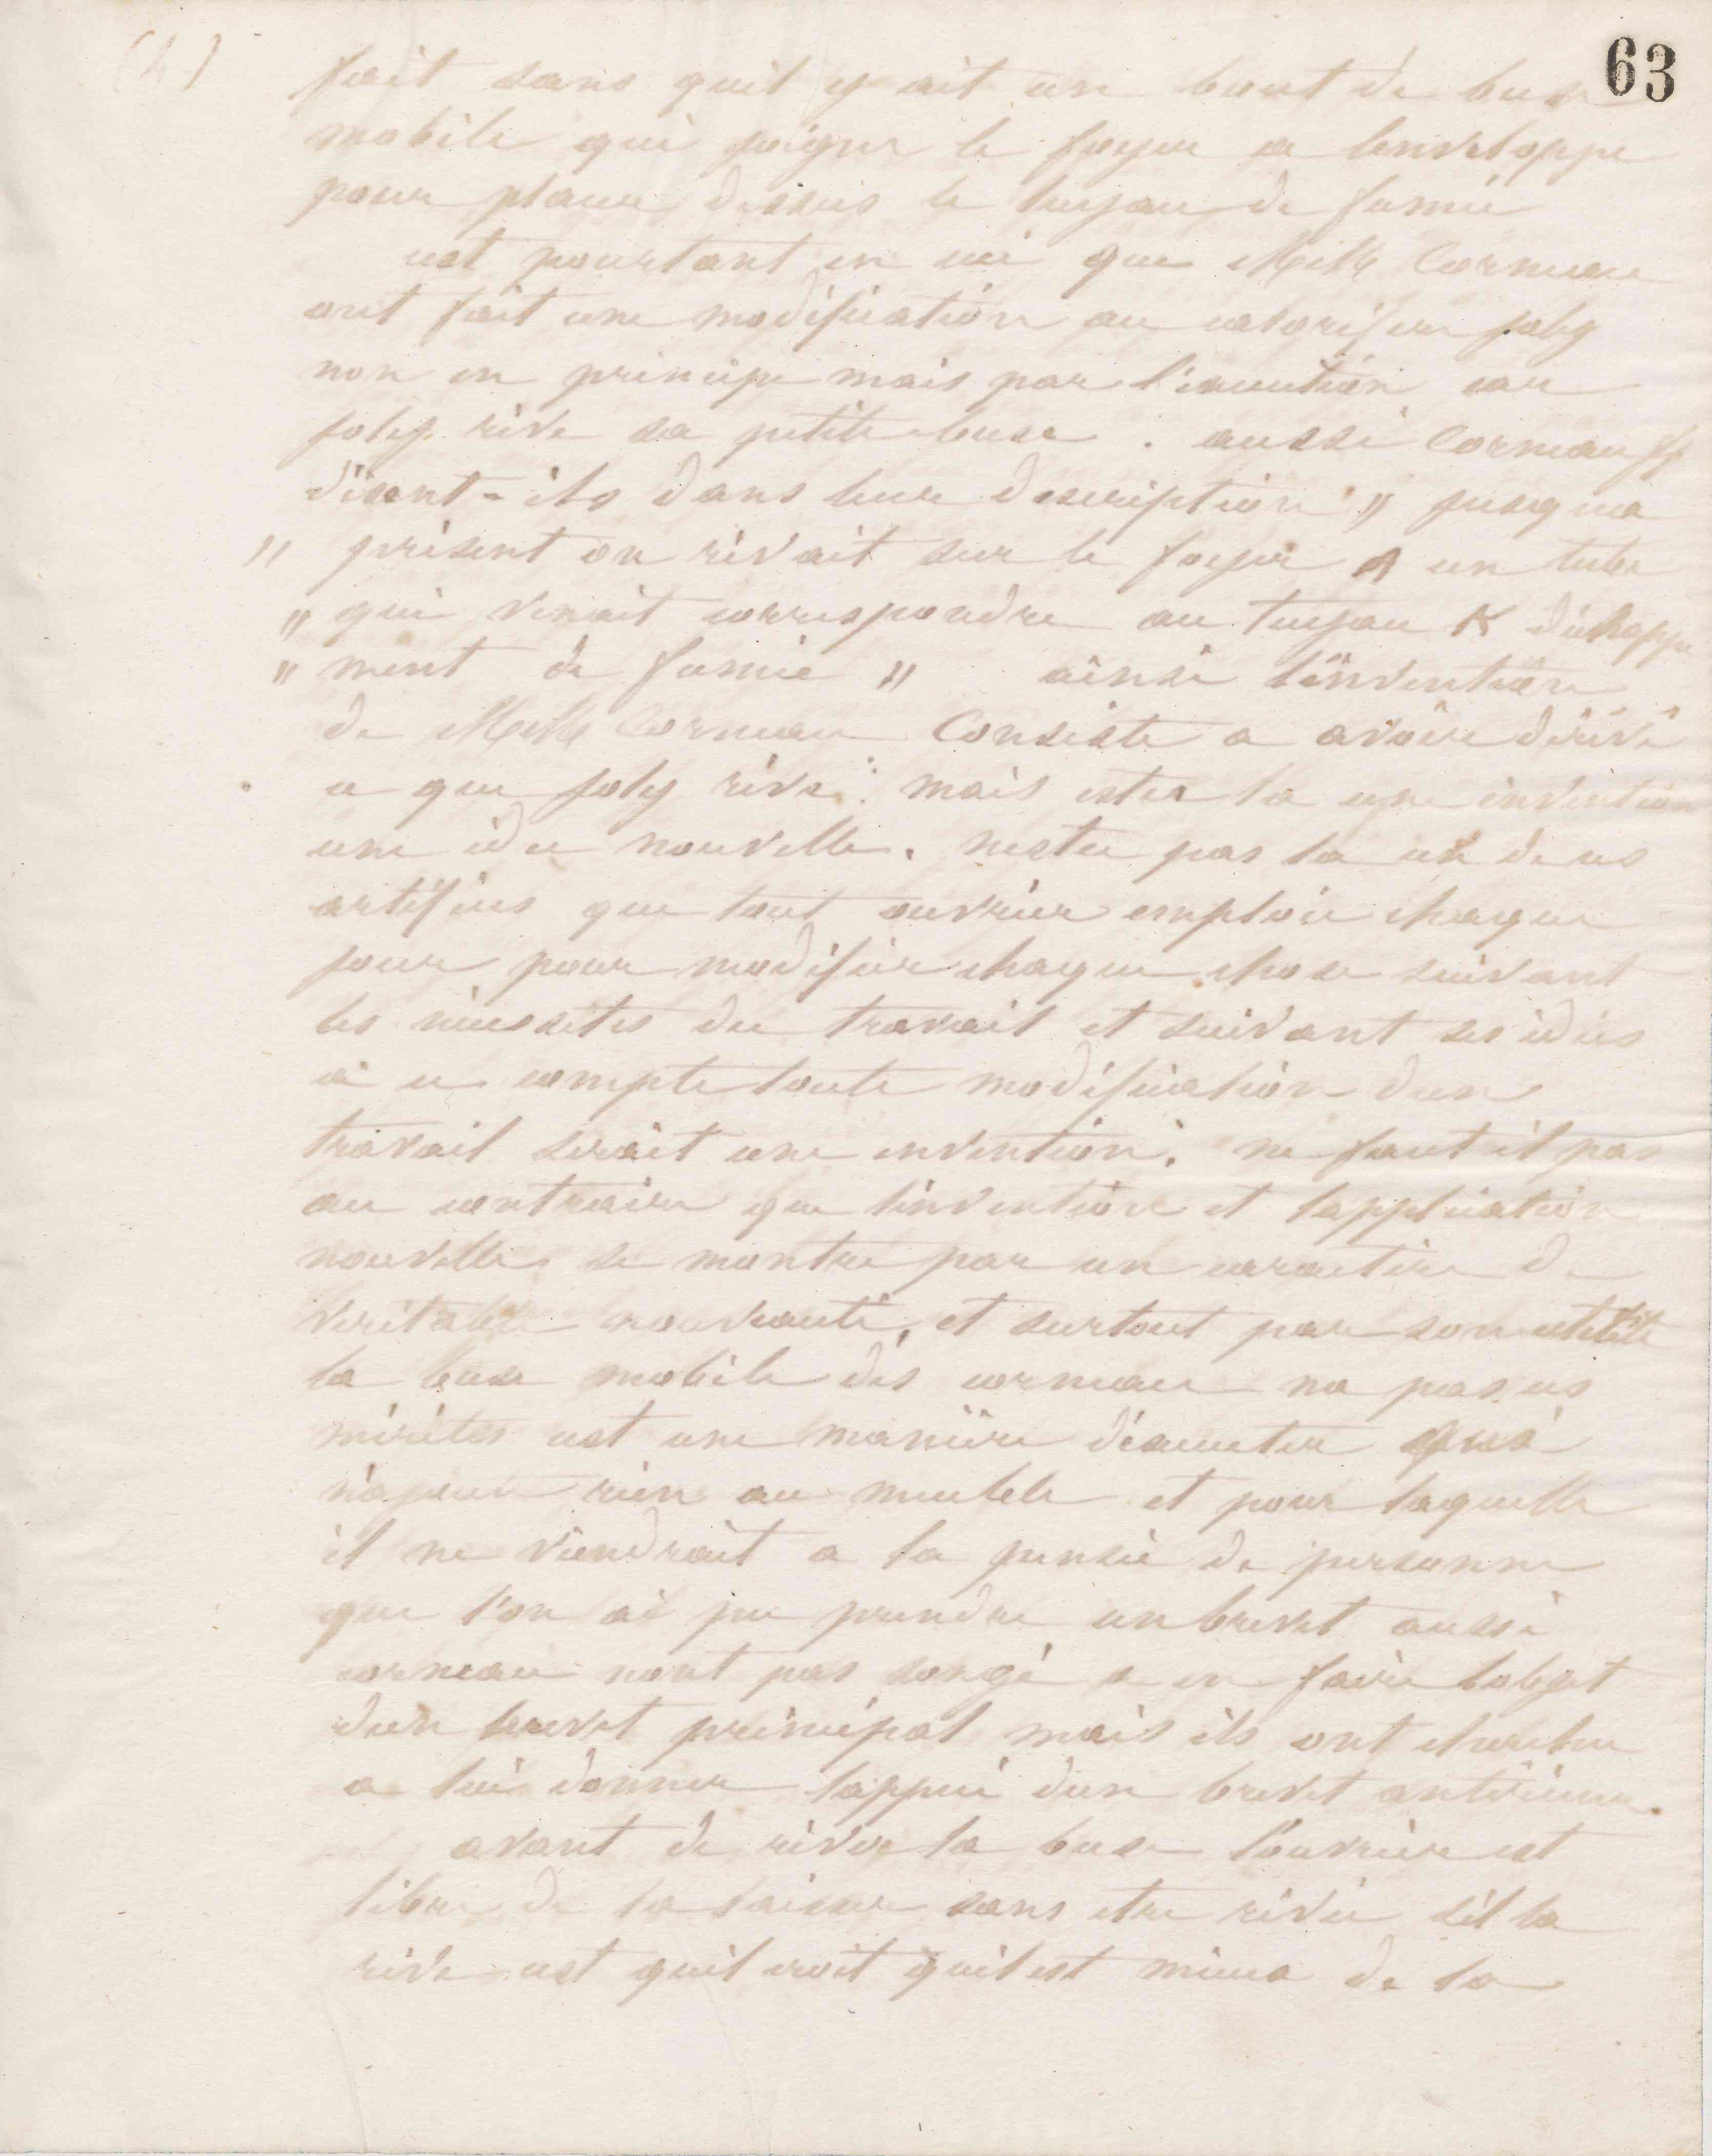 (4)
63
fait sans quil y ait un bout de buse
mobile qui joigne le foyer a lenveloppe
pour placer dessus le tuyau de fumée
cest pourtant en ceci que MM Corneau
ont fait une modification au calorifere joly
non en principe mais par l'execution car
joly rive sa petite buse . aussi Corneau ff
disent-ils dans leur description " jusqua
" présent on rivait sur le foyer A un tube
" qui venait correspondre au tuyau K déchappe
" ment de fumée " ainsi linvention
de MM Corneau Consiste a avoir dérivé
ce que joly rive : mais estce la une invention
une idee nouvelle . nestce pas la un de ces
artifices que tout ouvrier emploie chaque
jour pour modifier chaque chose suivant
les nécessites du travail et suivant ses idées
a ce compte toute modification dun
travail serait une invention . ne faut il pas
au contraire que linvention et lapplication
nouvelle se montre par un caractère de
veritable nouveauté, et surtout par son utilité
la buse mobile des corneau na pas ces
mérites cest une manière déxecuter qui
najoute rien au meuble et pour laquelle
il ne viendrait a la pensée de personne
que l'on ai pu prendre un brevet aussi
corneau nont pas songé a en faire lobjet
dun brevet principal mais ils ont cherche
a lui donner lappui dun brevet antérieur.
avant de river la buse louvrier est
libre de la laisser sans etre rivée sil la
rive cest quil croit quil est mieux de la